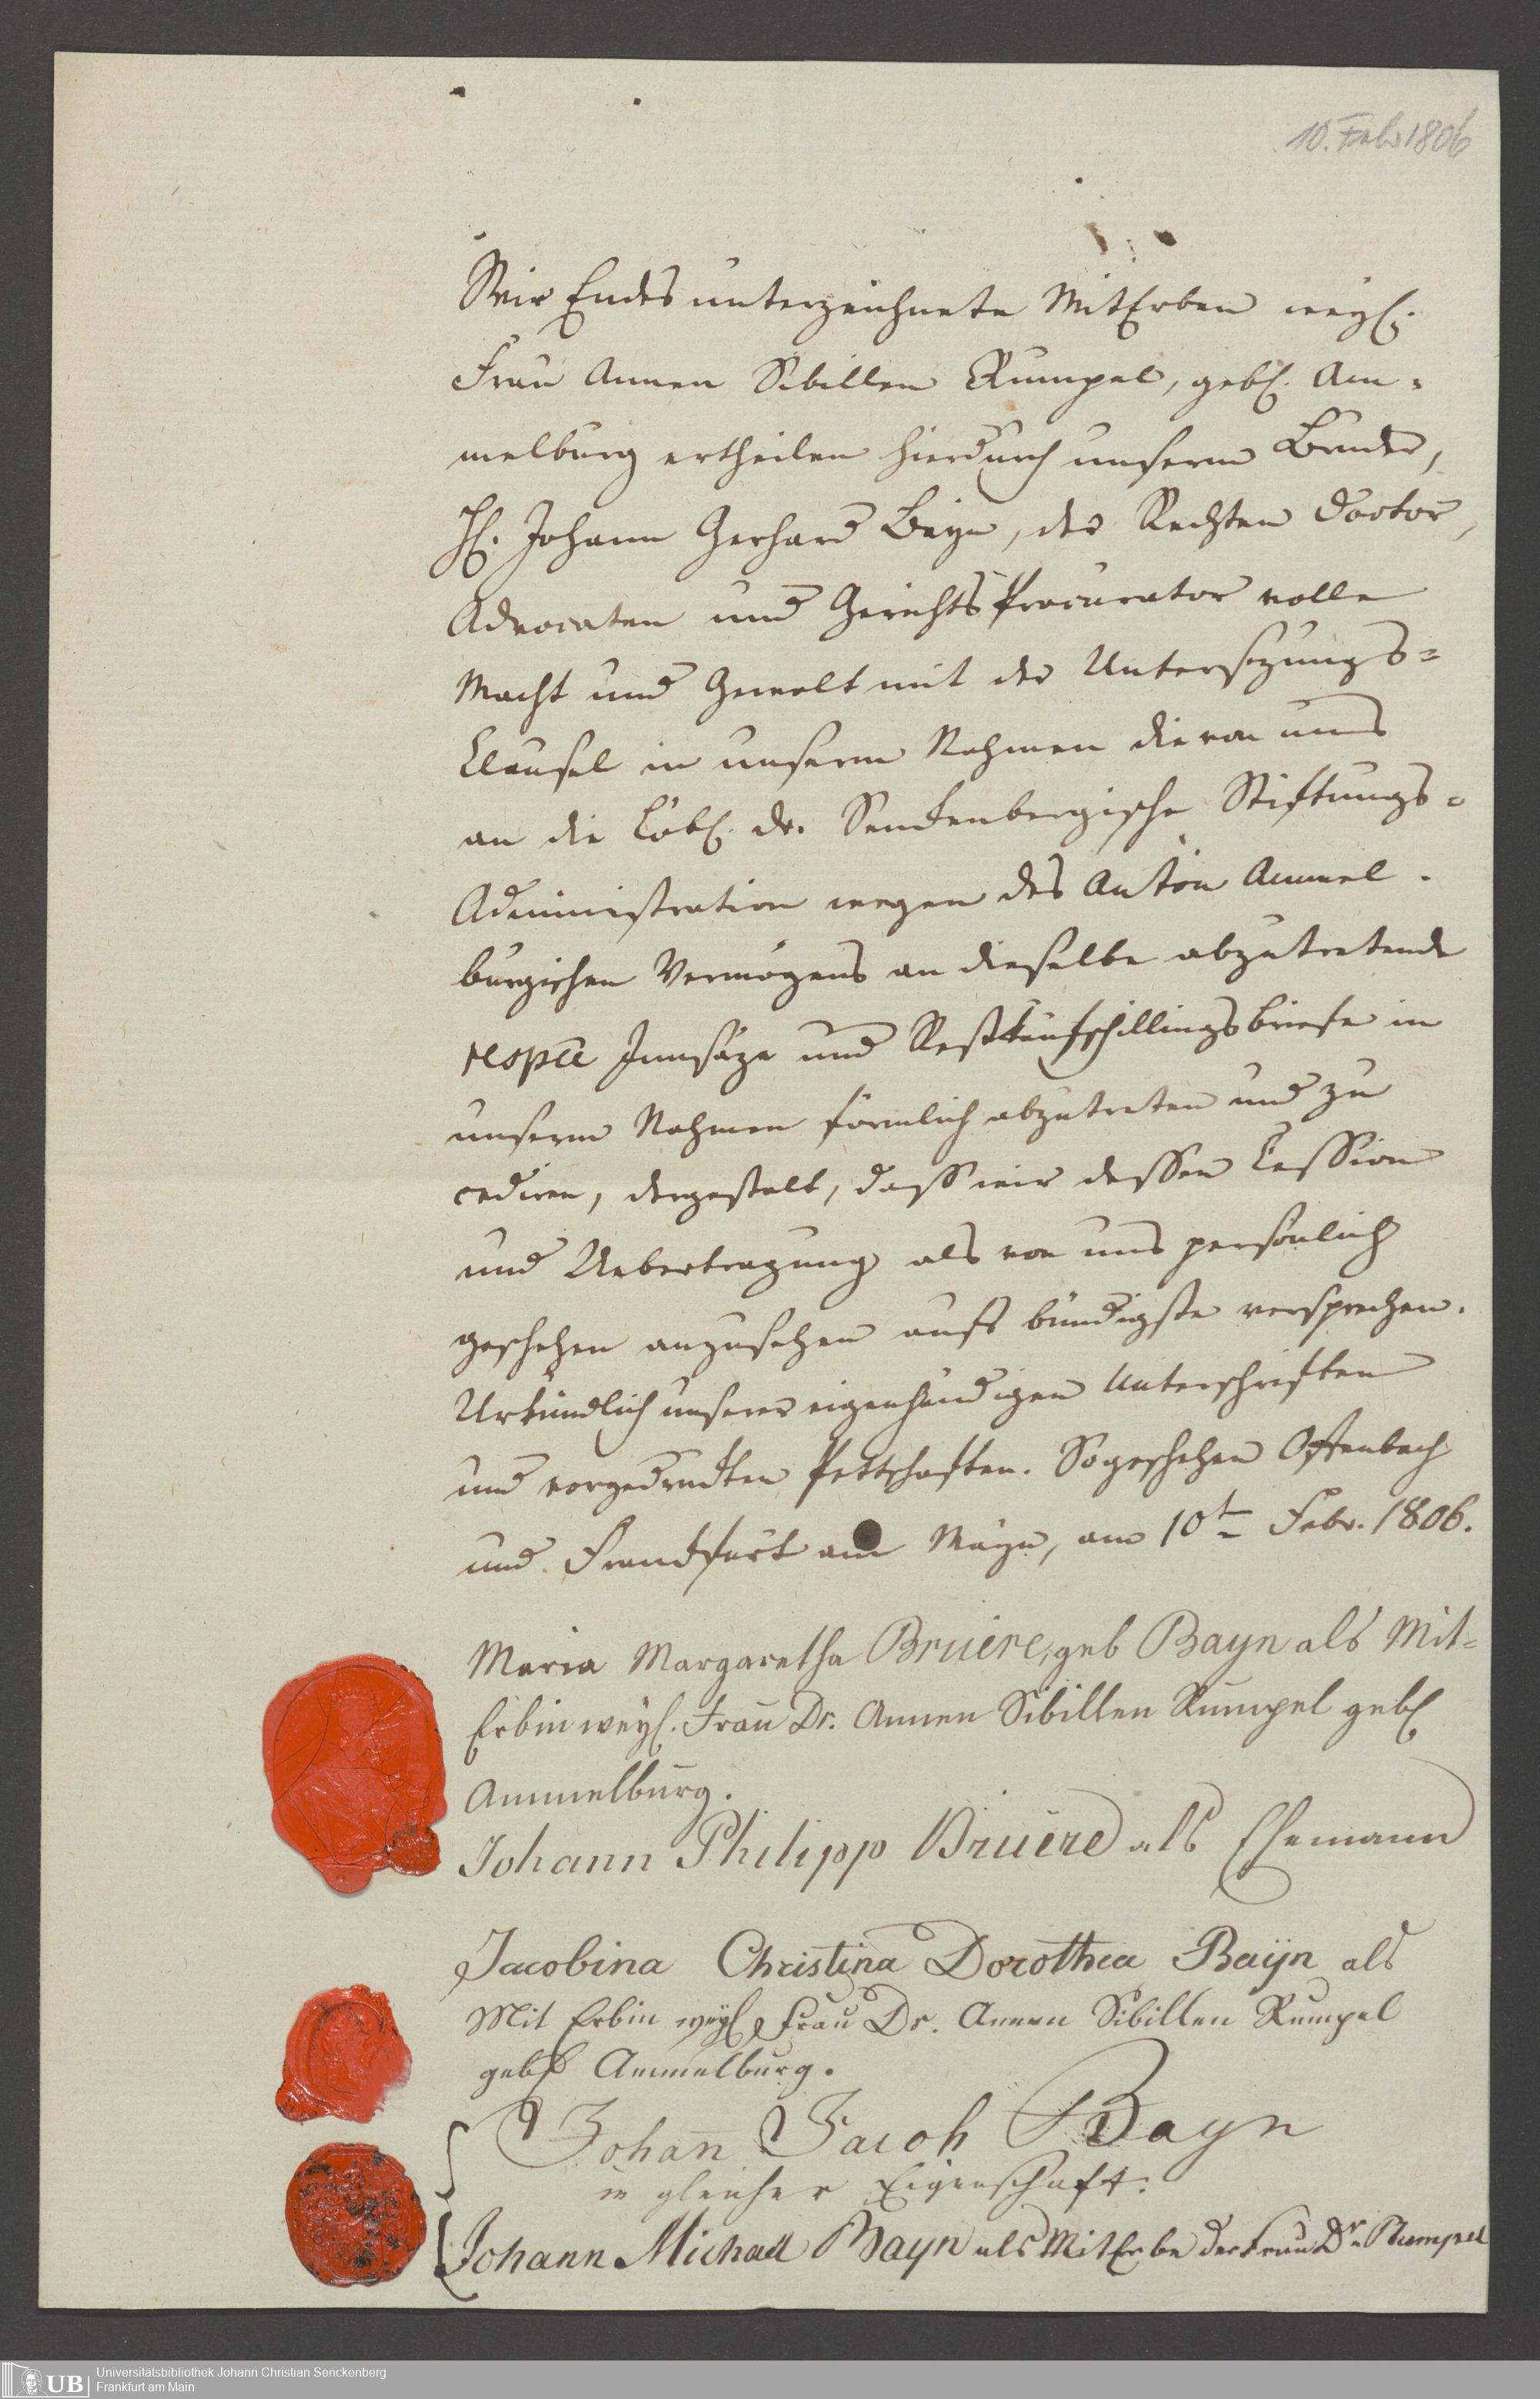 10. Febr 1806
Wir Endes unterzeichnete MitErben weyl.
Frau Annen Sibillen Rumpel, gebl. Am-
melburg ertheilen hierdurch unserm Bruder,
H. Johann Gerhard Bayn, der Rechten Doctor,
Advocaten und GerichtsProcurator volle
Macht und Gewalt mit der Untersezungs-
Clausel in unserm Nahmen die von uns
an die Löbl. Dr. Senckenbergische Stiftungs-
Administration wegen des Anton Ammel-
burgischen Vermögens an dieselbe abzutretende
respve Innsäze und Restkaufschillingsbriefe in
unserm Nahmen förmlich abzutreten und zu
cediren, dergestalt, dass wir dessen Cession
und Uebertragung als von uns persönlich
geschehen anzusehen aufs bündigste versprechen.
Urkundlich unserer eigenhändigen Unterschriften
und vorgedruckten Pettschaften. So geschehen Offenbach
und Franckfurt am Mayn, am 10t Febr. 1806.
Maria Margaretha Bruère, geb Bayn als Mit-
Erbin weyl. Frau Dr. Annen Sibillen Rumpel gebl
Ammelburg.
Johann Philipp Bruère als Ehemann
Jacobina Christina Dorothea Baÿn als
Mit Erbin weyl Frau Dr. Annen Sibillen Rumpel
gebl Ammelburg.
Johan̄ Jacob Bayn
in gleicher Eigenschaft.
Johann Michael Bayn als MitErbe der Frau Dr Rumpel
UB
Universitätsbibliothek Johann Christian Senckenberg
Frankfurt am Main